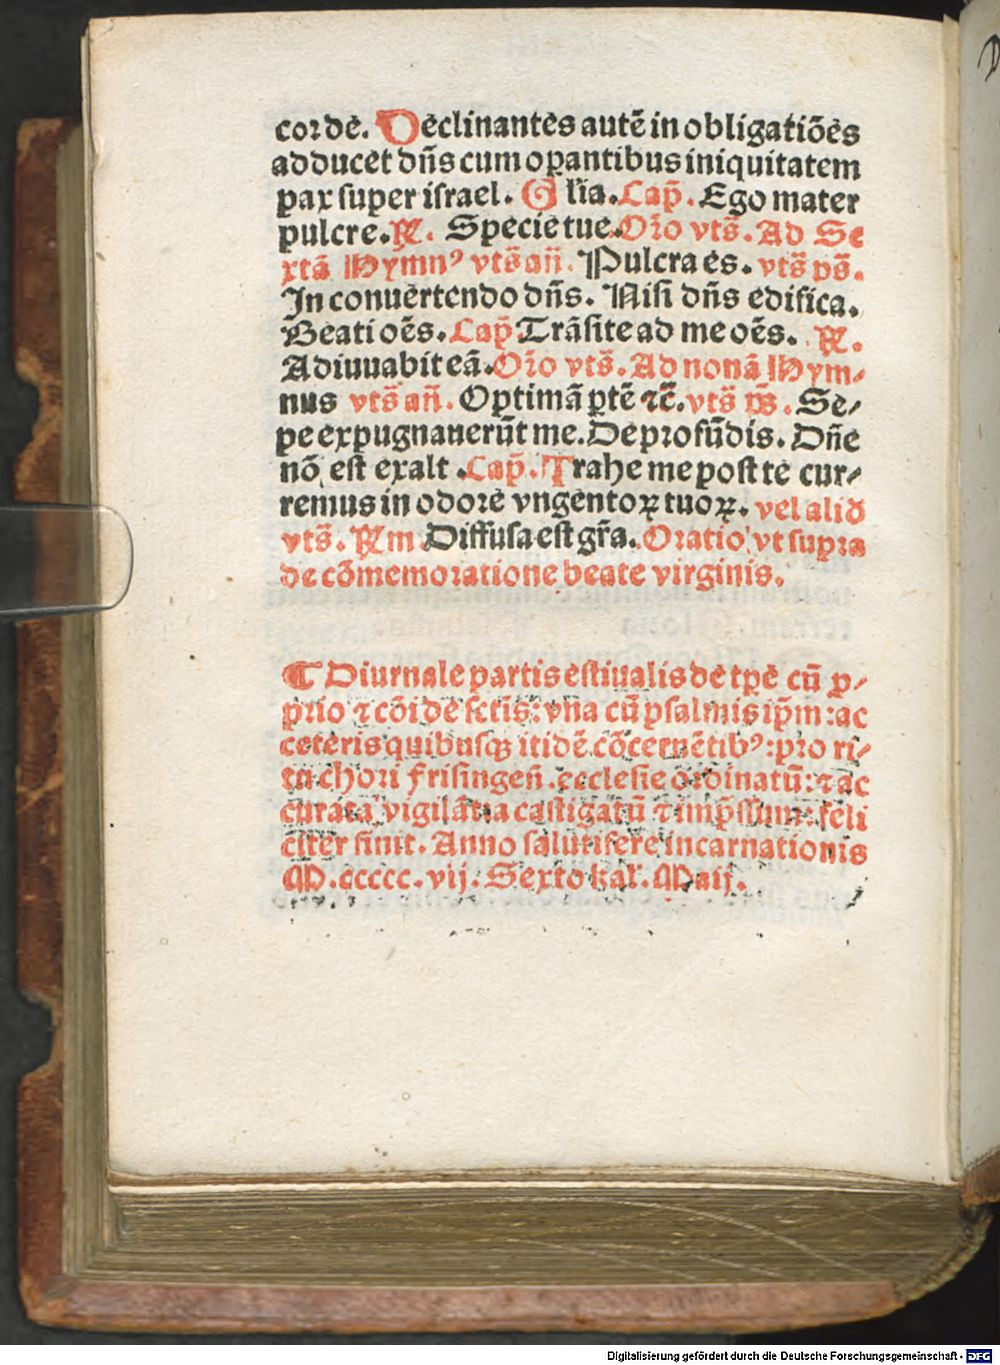 corde. Declinantes autē in obligatiōes
adducet dn̄s cum oꝑantibus iniquitatem
pax super israel. Gl̄ia. Cap̄. Ego mater
pulcre. ꝶ. Specie tue. Or̄o vts̄. Ad Se
xtā Hymnꝰ vts̄ an̄. Pulcra es. vts̄ ps̄.
In conuertendo dn̄s. Nisi dn̄s edifica.
Beati oēs. Cap̄ Trāsite ad me oēs. ꝶ.
Adiuuabit eā. Or̄o vts̄. Ad nonā Hym⸗
nus vts̄ an̄. Optimā ꝑtē ⁊c̄. vts̄ ps̄. Se⸗
pe expugnauerūt me. De profūdis. Dn̄e
nō est exalt. Cap̄. Trahe me post te cur⸗
remus in odore vngentoꝝ tuoꝝ. vel aliđ
vts̄. ꝶm Diffusa est gr̄a. Oratio vt supra
de cōmemoratione beate virginis.
¶ Diurnale partis estiualis de tꝑe cū ꝓ⸗
prio ⁊ cōi de sctīs: vna cū psalmis ip̄m: ac
ceteris quibusqꝫ itidē cōcernētibꝰ: pro ri⸗
tu chori frisingen̄. ecclesie ordinatū: ⁊ ac
curata vigilātia castigatū ⁊ imp̄ssum: feli
citer finit. Anno salutifere incarnationis
M.ccccc.vij. Sexto kal. Maij.
Digitalisierung gefördert durch die Deutsche Forschungsgemeinschaft - DFG